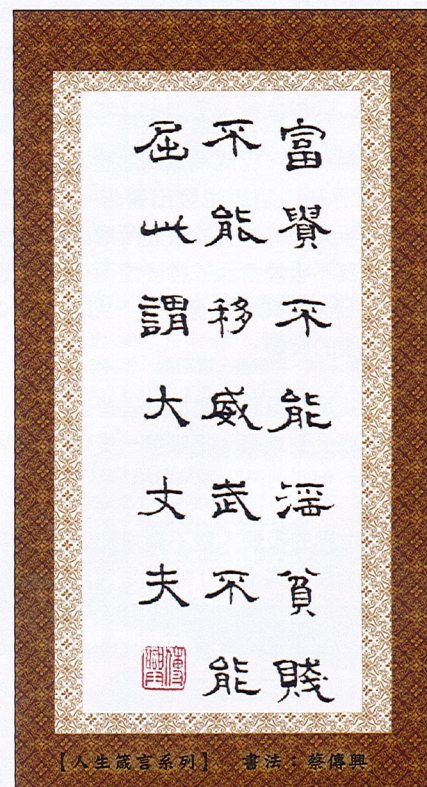 富貴不能淫貧賤
不能移威武不能
屈此謂大丈夫
傳興
【人生箴言系列】 書法：蔡傳興